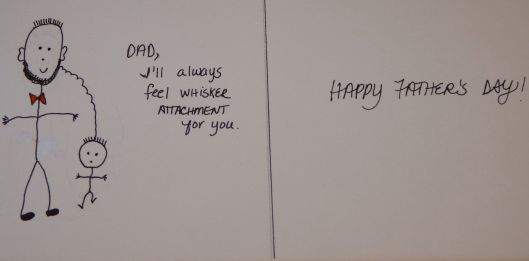 DAD,
I'll always
feel WHISKER
ATTACHMENT
for you.
HAPPY FATHER'S DAY!